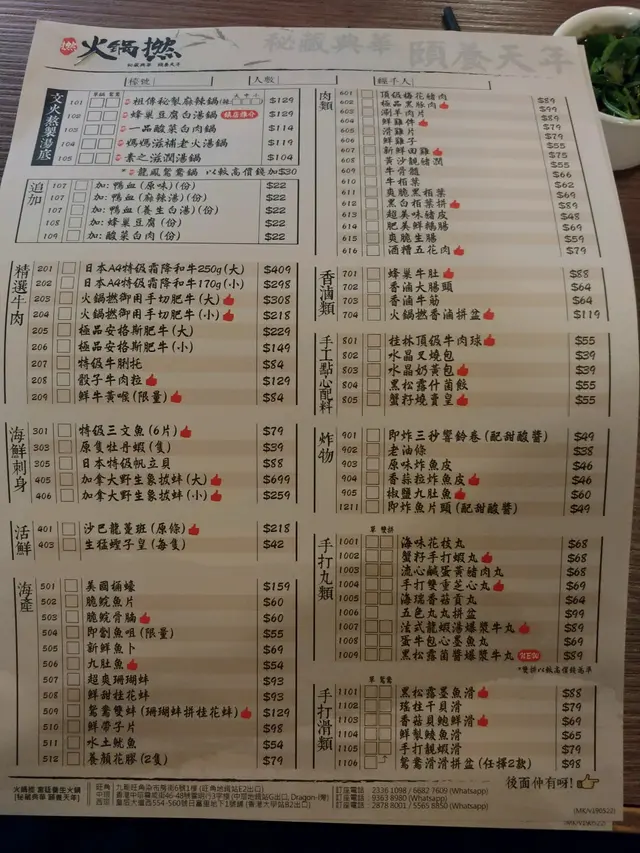 撚 火鍋撚
秘藏典華 頤養天年
秘藏典華 頤養天年
檯號 人數 經手人
文火熬製湯底
單鍋 鴛鴦
101 祖傳秘製麻辣鍋 $129
102 蜂巢豆腐白湯鍋 鎮店推介 $129
103 一品酸菜白肉鍋 $114
104 媽媽滋補老火湯鍋 $119
105 素之滋潤湯鍋 $104
*龍鳳鴛鴦鍋 以較高價錢加$30
追加
107 加: 鴨血 (原味) (份) $22
107 加: 鴨血 (麻辣湯) (份) $22
107 加: 鴨血 (養生白湯) (份) $22
108 加: 蜂巢豆腐 (份) $22
109 加: 酸菜白肉 (份) $22
精選牛肉
201 日本A4特級霜降和牛250g (大) $409
202 日本A4特級霜降和牛170g (小) $298
203 火鍋撚御用手切肥牛 (大) $308
204 火鍋撚御用手切肥牛 (小) $218
205 極品安格斯肥牛 (大) $229
206 極品安格斯肥牛 (小) $149
207 特級牛脷托 $84
208 骰子牛肉粒 $129
209 鮮牛黃喉 (限量) $84
海鮮刺身
301 特級三文魚 (6片) $79
303 原隻牡丹蝦 (隻) $39
305 日本特級帆立貝 $88
405 加拿大野生象拔蚌 (大) $699
406 加拿大野生象拔蚌 (小) $259
活鮮
401 沙巴龍躉班 (原條) $218
403 生猛蟶子皇 (每隻) $42
海產
501 美國桶蠔 $159
502 脆鯇魚片 $60
503 脆鯇骨腩 $60
504 即劏魚咀 (限量) $55
505 新鮮魚卜 $69
506 九肚魚 $54
507 超爽珊瑚蚌 $93
508 鮮甜桂花蚌 $93
509 鴛鴦雙蚌 (珊瑚蚌拼桂花蚌) $129
510 鮮帶子片 $98
511 水土魷魚 $54
512 養顏花膠 (2隻) $79
肉類
601 頂級梅花豬肉 $89
602 極品黑豚肉 $99
603 涮羊肉片 $89
604 鮮雞件 $79
605 滑雞片 $79
606 鮮雞子 $55
607 新鮮田雞 $75
608 黃沙靚豬潤 $55
609 牛骨髓 $66
610 牛栢葉 $62
611 爽脆黑栢葉 $69
612 黑白栢葉拼 $89
613 超美味豬皮 $48
614 肥美鮮鵝腸 $69
615 爽脆生腸 $59
616 酒糟五花肉 $79
香滷類
701 蜂巢牛肚 $88
702 香滷大腸頭 $64
703 香滷牛筋 $64
704 火鍋撚香滷拼盆 $119
手工點心配料
801 桂林頂級牛肉球 $55
802 水晶叉燒包 $39
803 水晶奶黃包 $39
804 黑松露什菌餃 $55
805 蟹籽燒賣皇 $55
炸物
901 即炸三秒響鈴卷 (配甜酸醬) $49
902 老油條 $38
903 原味炸魚皮 $46
904 香蒜粒炸魚皮 $46
905 椒鹽九肚魚 $60
1211 即炸魚片頭 (配甜酸醬) $49
手打丸類
單 雙拼
1001 海味花枝丸 $68
1002 蟹籽手打蝦丸 $68
1003 流心鹹蛋黃豬肉丸 $68
1004 手打雙重芝心丸 $69
1005 海瑞香菇貢丸 $64
1006 五色丸丸拼盆 $99
1007 法式龍蝦湯爆漿牛丸 $89
1008 蛋牛包心墨魚丸 $69
1009 黑松露菌醬爆漿牛丸 NEW $69
*雙拼以較高價錢為準
手打滑類
單 鴛鴦
1101 黑松露墨魚滑 $88
1102 瑤柱干貝滑 $79
1103 香菇貝鮑鮮滑 $69
1104 鮮製鯪魚滑 $65
1105 手打靚蝦滑 $79
1106 鴛鴦滑滑拼盆 (任擇2款) $98
後面仲有呀!
火鍋撚 宮廷養生火鍋
[秘藏典華 頤養天年]
旺角 九龍旺角染布房街6號1樓 (旺角地鐵站E2出口) 訂座電話: 2336 1098 / 6682 7609 (Whatsapp)
中環 香港中環威靈頓街46-48號雙明行3字樓 (中環地鐵站G出口, Dragon-i旁) 訂座電話: 9363 8980 (Whatsapp)
西環 皇后大道西554-560號日富座地下1號舖 (香港大學站B2出口) 訂座電話: 2878 8001 / 5565 8850 (Whatsapp)
(MKV190522)